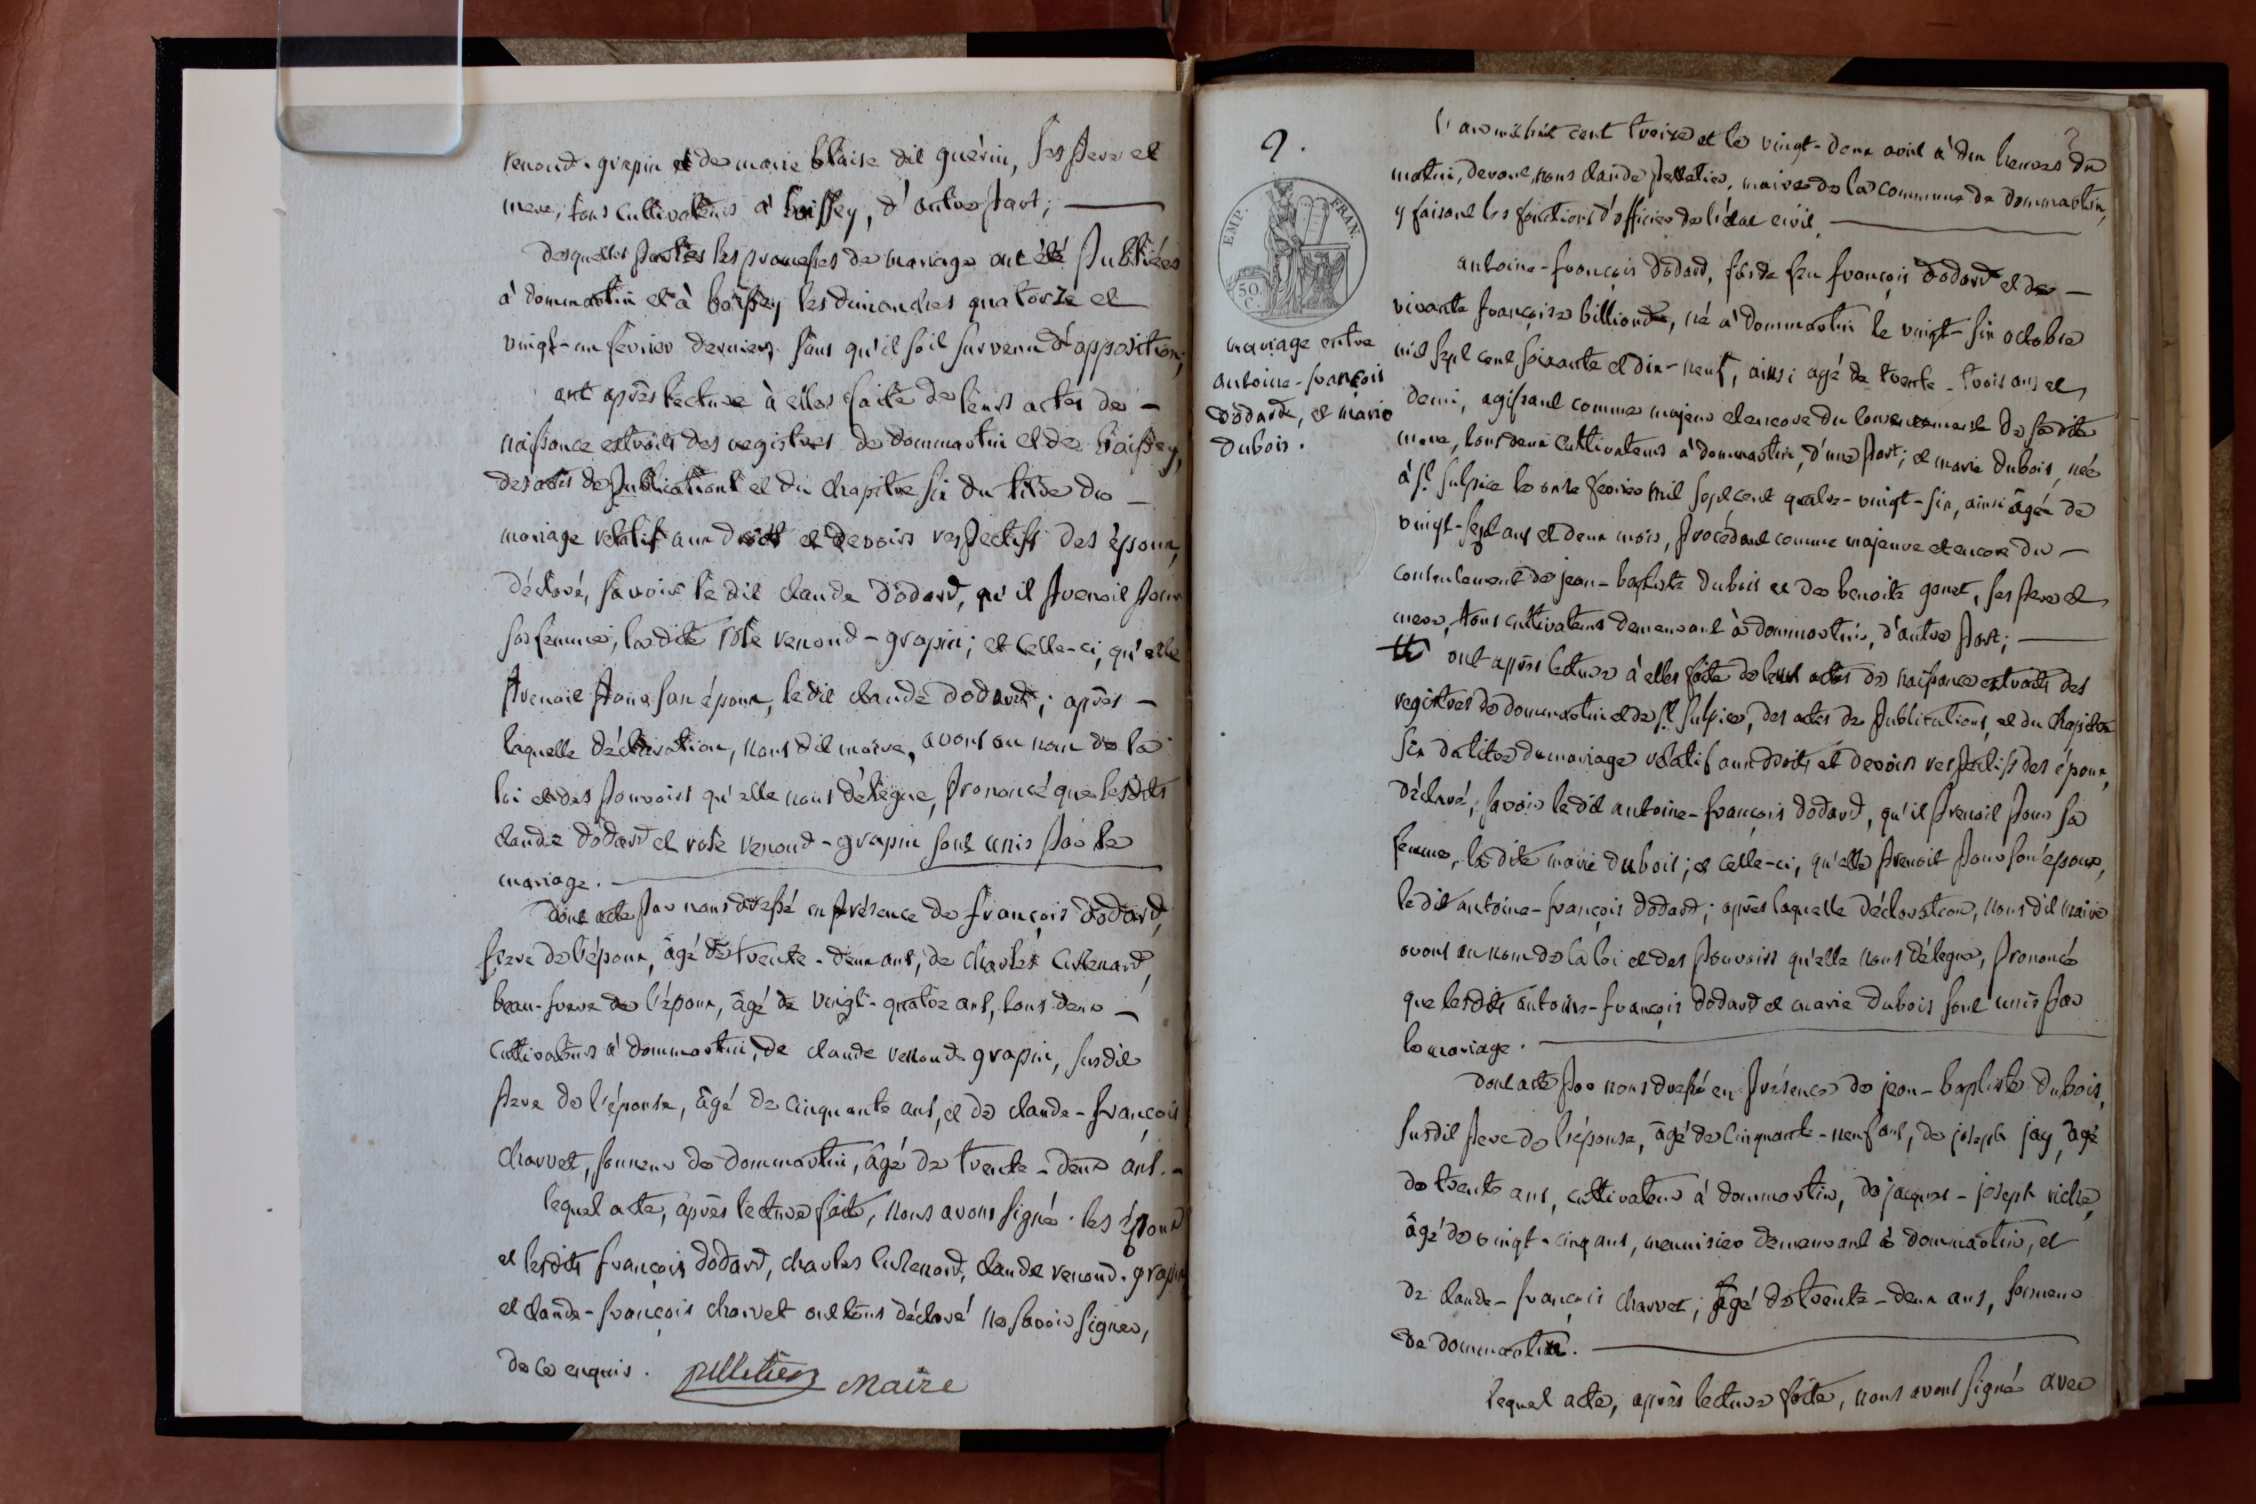 renoud-grapin et de marie blaise dit guérin, ses pere et
mere, tous cultivateurs à boissey, d'autre part;
desquelles parties les promesses de mariage ont été publiées
à dommartin et à boissey les dimanches quatorze et
vingt-un février dernier, sans qu'il soit survenu d'opposition;
ont après lecture à elles faite de leurs actes de
naissance extraits des registres de dommartin et de boissey,
des actes de publications et du chapitre six du titre du
mariage relatif aux droits et devoirs respectifs des époux,
déclaré, savoir le dit claude dodard, qu'il prenoit pour
sa femme, la dite rose renoud-grapin; et celle-ci, qu'elle
prenoit pour son époux, le dit claude dodard; après
laquelle déclaration, nous dit maire, avons au nom de la
loi et des pouvoirs qu'elle nous délègue, prononcé que lesdits
claude dodard et rose renoud-grapin sont unis par le
mariage.
dont acte par nous dressé en présence de françois dodard,
frere de l'époux, âgé de trente-deux ans, de charles
beau-frere de l'époux, âgé de vingt-quatre ans, tous deux
cultivateurs à dommartin, de claude renoud-grapin, susdit
pere de l'épouse, âgé de cinquante ans, et de claude-françois
charvet, sonneur de dommartin, âgé de trente-deux ans.
lequel acte, après lecture faite, nous avons signé. les époux
et lesdits françois dodard, charles claude renoud-grapin
et claude-françois charvet ont tous déclaré ne savoir signer,
de ce enquis. pelletier maire
2.
EMP. FRAN.
50 C.
mariage entre
antoine-françois
dodard, et marie
dubois.
l'an mil huit cent treize et le vingt-deux avril à dix heures du
matin, devant nous claude pelletier, maire de la commune de dommartin,
y faisant les fonctions d'officier de l'état civil,
antoine-françois dodard, fils de feu françois dodard et de
vivante françoise billioud, né à dommartin le vingt-six octobre
mil sept cent soixante et dix-neuf, ainsi âgé de trente-trois ans et
demi, agissant comme majeur et encore du consentement de sa dite
mere, tous deux cultivateurs à dommartin, d'une part; et marie dubois, née
à st. sulpice le onze février mil sept cent quatre-vingt-six, ainsi âgée de
vingt-sept ans et deux mois, procédant comme majeure et encore du
consentement de jean-baptiste dubois et de benoite gonet, ses pere et
mere, tous cultivateurs demeurant à dommartin, d'autre part;
ont après lecture à elles faite de leurs actes de naissance extraits des
registres de dommartin et de st. sulpice, des actes de publications, et du chapitre
six du titre du mariage relatif aux droits et devoirs respectifs des époux,
déclaré, savoir le dit antoine-françois dodard, qu'il prenoit pour sa
femme, la dite marie dubois; et celle-ci, qu'elle prenoit pour son époux,
le dit antoine-françois dodard; après laquelle déclaration, nous dit maire
avons au nom de la loi et des pouvoirs qu'elle nous délegue, prononcé
que lesdits antoine-françois dodard et marie dubois sont unis par
le mariage.
dont acte par nous dressé en présence de jean-baptiste dubois,
susdit pere de l'épouse, âgé de cinquante-neuf ans, de joseph jay, âgé
de trente ans, cultivateur à dommartin, de jacques-joseph
âgé de vingt-cinq ans, menuisier demeurant à dommartin, et
de claude-françois charvet, âgé de trente-deux ans, sonneur
de dommartin.
lequel acte, après lecture faite, nous avons signé avec